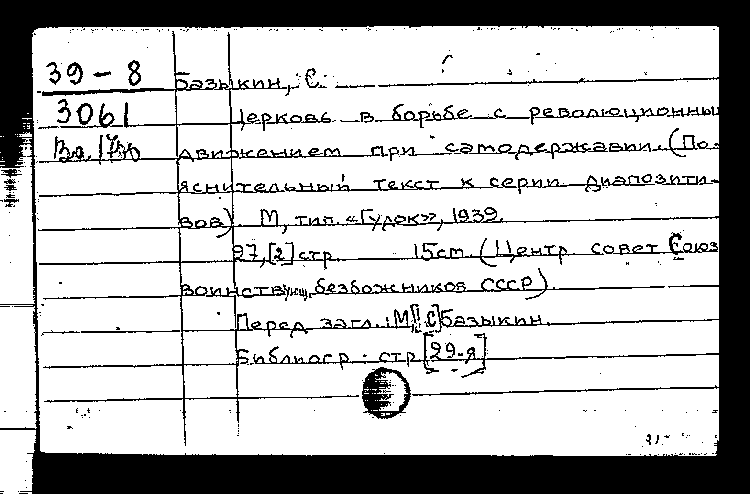 39-8
3061
Базыкин, С.
Церковь в борьбе с революционны
движением при самодержавии. (По-
яснительный текст к серии диапозити-
вов). М, тип. «Гудок», 1939.
27,[2] стр. 15см. (Центр совет Союз
воинствующ. безбожников СССР).
Перед загл.: М[!С] Базыкин.
Библиогр.: стр [29-я]